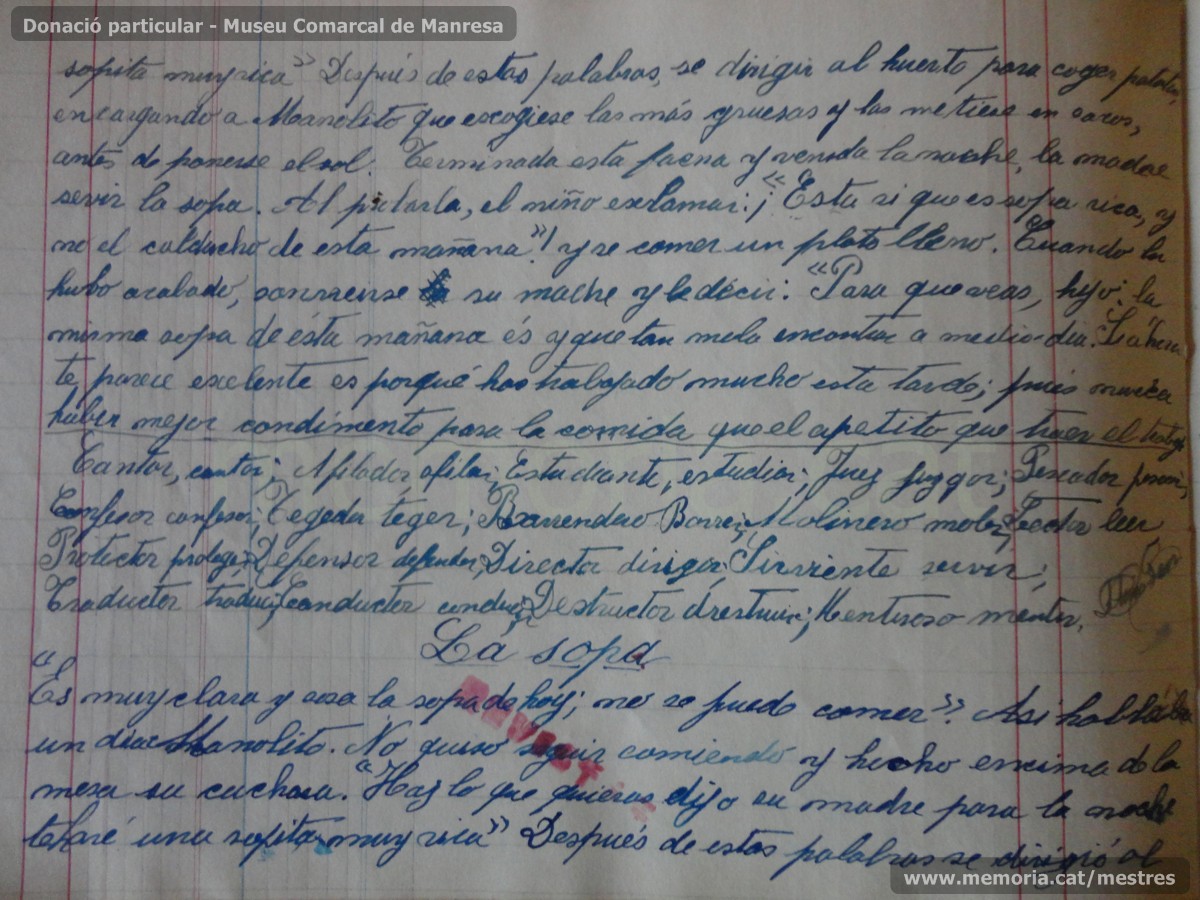 Donació particular - Museu Comarcal de Manresa
sopita muy rica" Después de estas palabras, se dirigir al huerto para coger patatas,
encargando a Manolito que escogiese las más gruesas y las metiese en sacos,
antes de ponerse el sol. Terminada esta faena y venida la noche, la madre
servir la sopa. Al probarla, el niño exclamar: ¡"Esta si que es sopa rica, y
no el calducho de esta mañana"! y se comer un plato lleno. Cuando la
hubo acabado, sonreirse su madre y le decir: "Para que veas, hijo: la
misma sopa de ésta mañana és y que tan mala encontrar a medio-dia. Si ahora
te parece excelente es porqué has trabajado mucho esta tarde; pués nunca
haber mejor condimento para la comida que el apetito que traer el trabajo
Cantor, cantar; Afilador, afilar; Estudiante, estudiar; Juez juzgar; Pescador pescar;
Confesor confesar; Tegedor teger; Barrendero Barrer; Molinero moler; Lector leer
Protector proteger; Defensor defender; Director dirigir; Sirviente servir;
Traductor traducir; Conductor conducir; Destructor destruir; Mentiroso mentir.
La sopa
"Es muy clara y sosa la sopa de hoy; no se puede comer". Asi hablaba
un dia Manolito. No quiso seguir comiendo y hecho encima de la
mesa su cuchara. "Haz lo que quieras dijo su madre para la noche
te haré una sopita muy rica" Después de estas palabras se dirigió al
www.memoria.cat/mestres